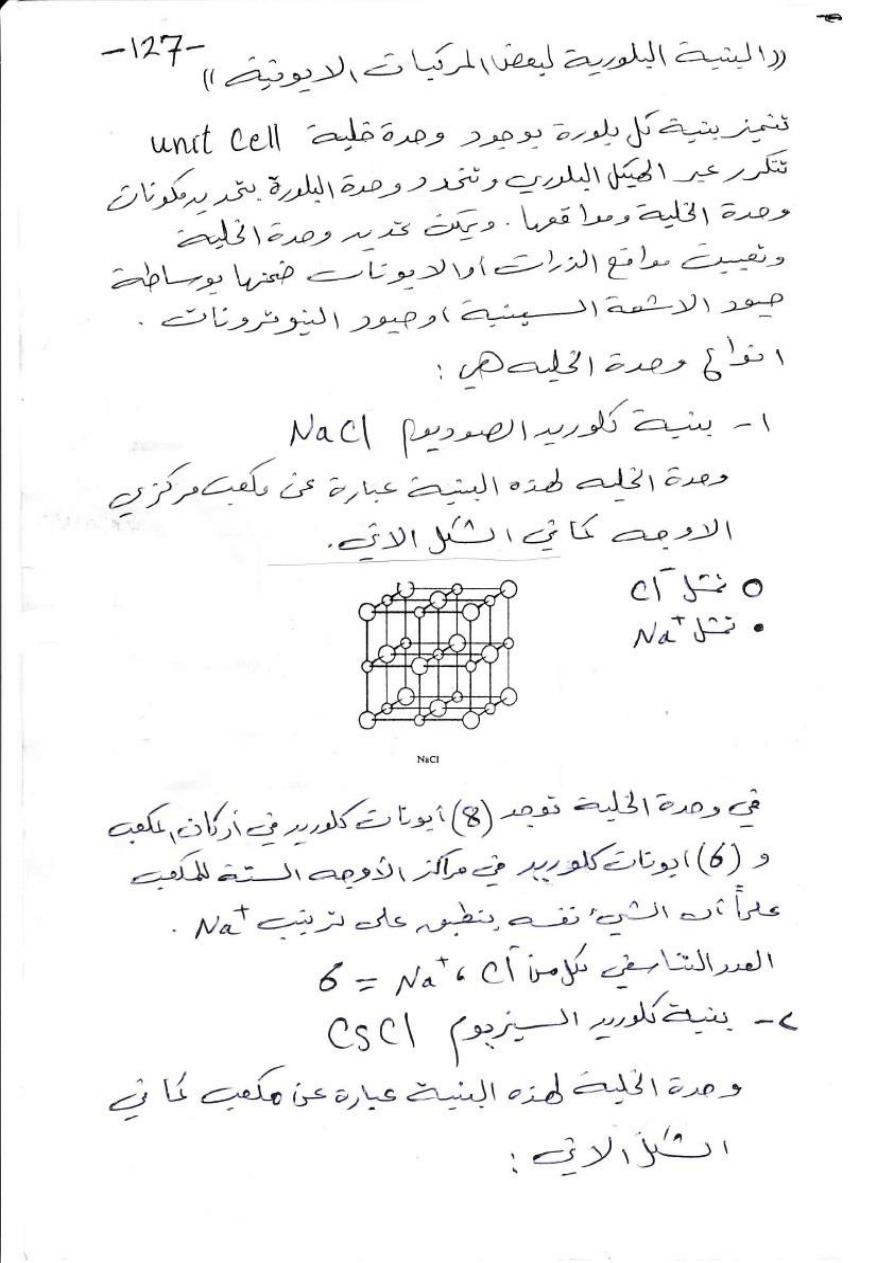 -127-
((البنية البلورية لبعض المركبات الايونية))
تتميز بنية كل بلورة بوجود وحدة خلية unit cell
تتكرر عبر الهيكل البلوري وتتحدد وحدة البلورة بتحديد مكونات
وحدة الخلية ومواقعها. ويمكن تحديد وحدة الخلية
وتعيين مواقع الذرات أو الايونات ضمنها بوساطة
حيود الاشعة السينية او حيود النيوترونات .
انواع وحدة الخليه هي :
١- بنية كلوريد الصوديوم NaCl
وحدة الخليه لهذه البنية عبارة عن مكعب مركزي
الاوجه كما في الشكل الاتي.
○ تمثل Cl⁻
• تمثل Na⁺
NaCl
في وحدة الخلية توجد (8) أيونات كلوريد في أركان المكعب
و (6) ايونات كلوريد في مراكز الأوجه الستة للمكعب
علماً أن الشيء نفسه ينطبق على ترتيب Na⁺ .
العدد التناسقي لكل من Cl⁻ ، Na⁺ = 6
٢- بنية كلوريد السيزيوم CsCl
وحدة الخلية لهذه البنية عبارة عن مكعب كما في
الشكل الاتي :